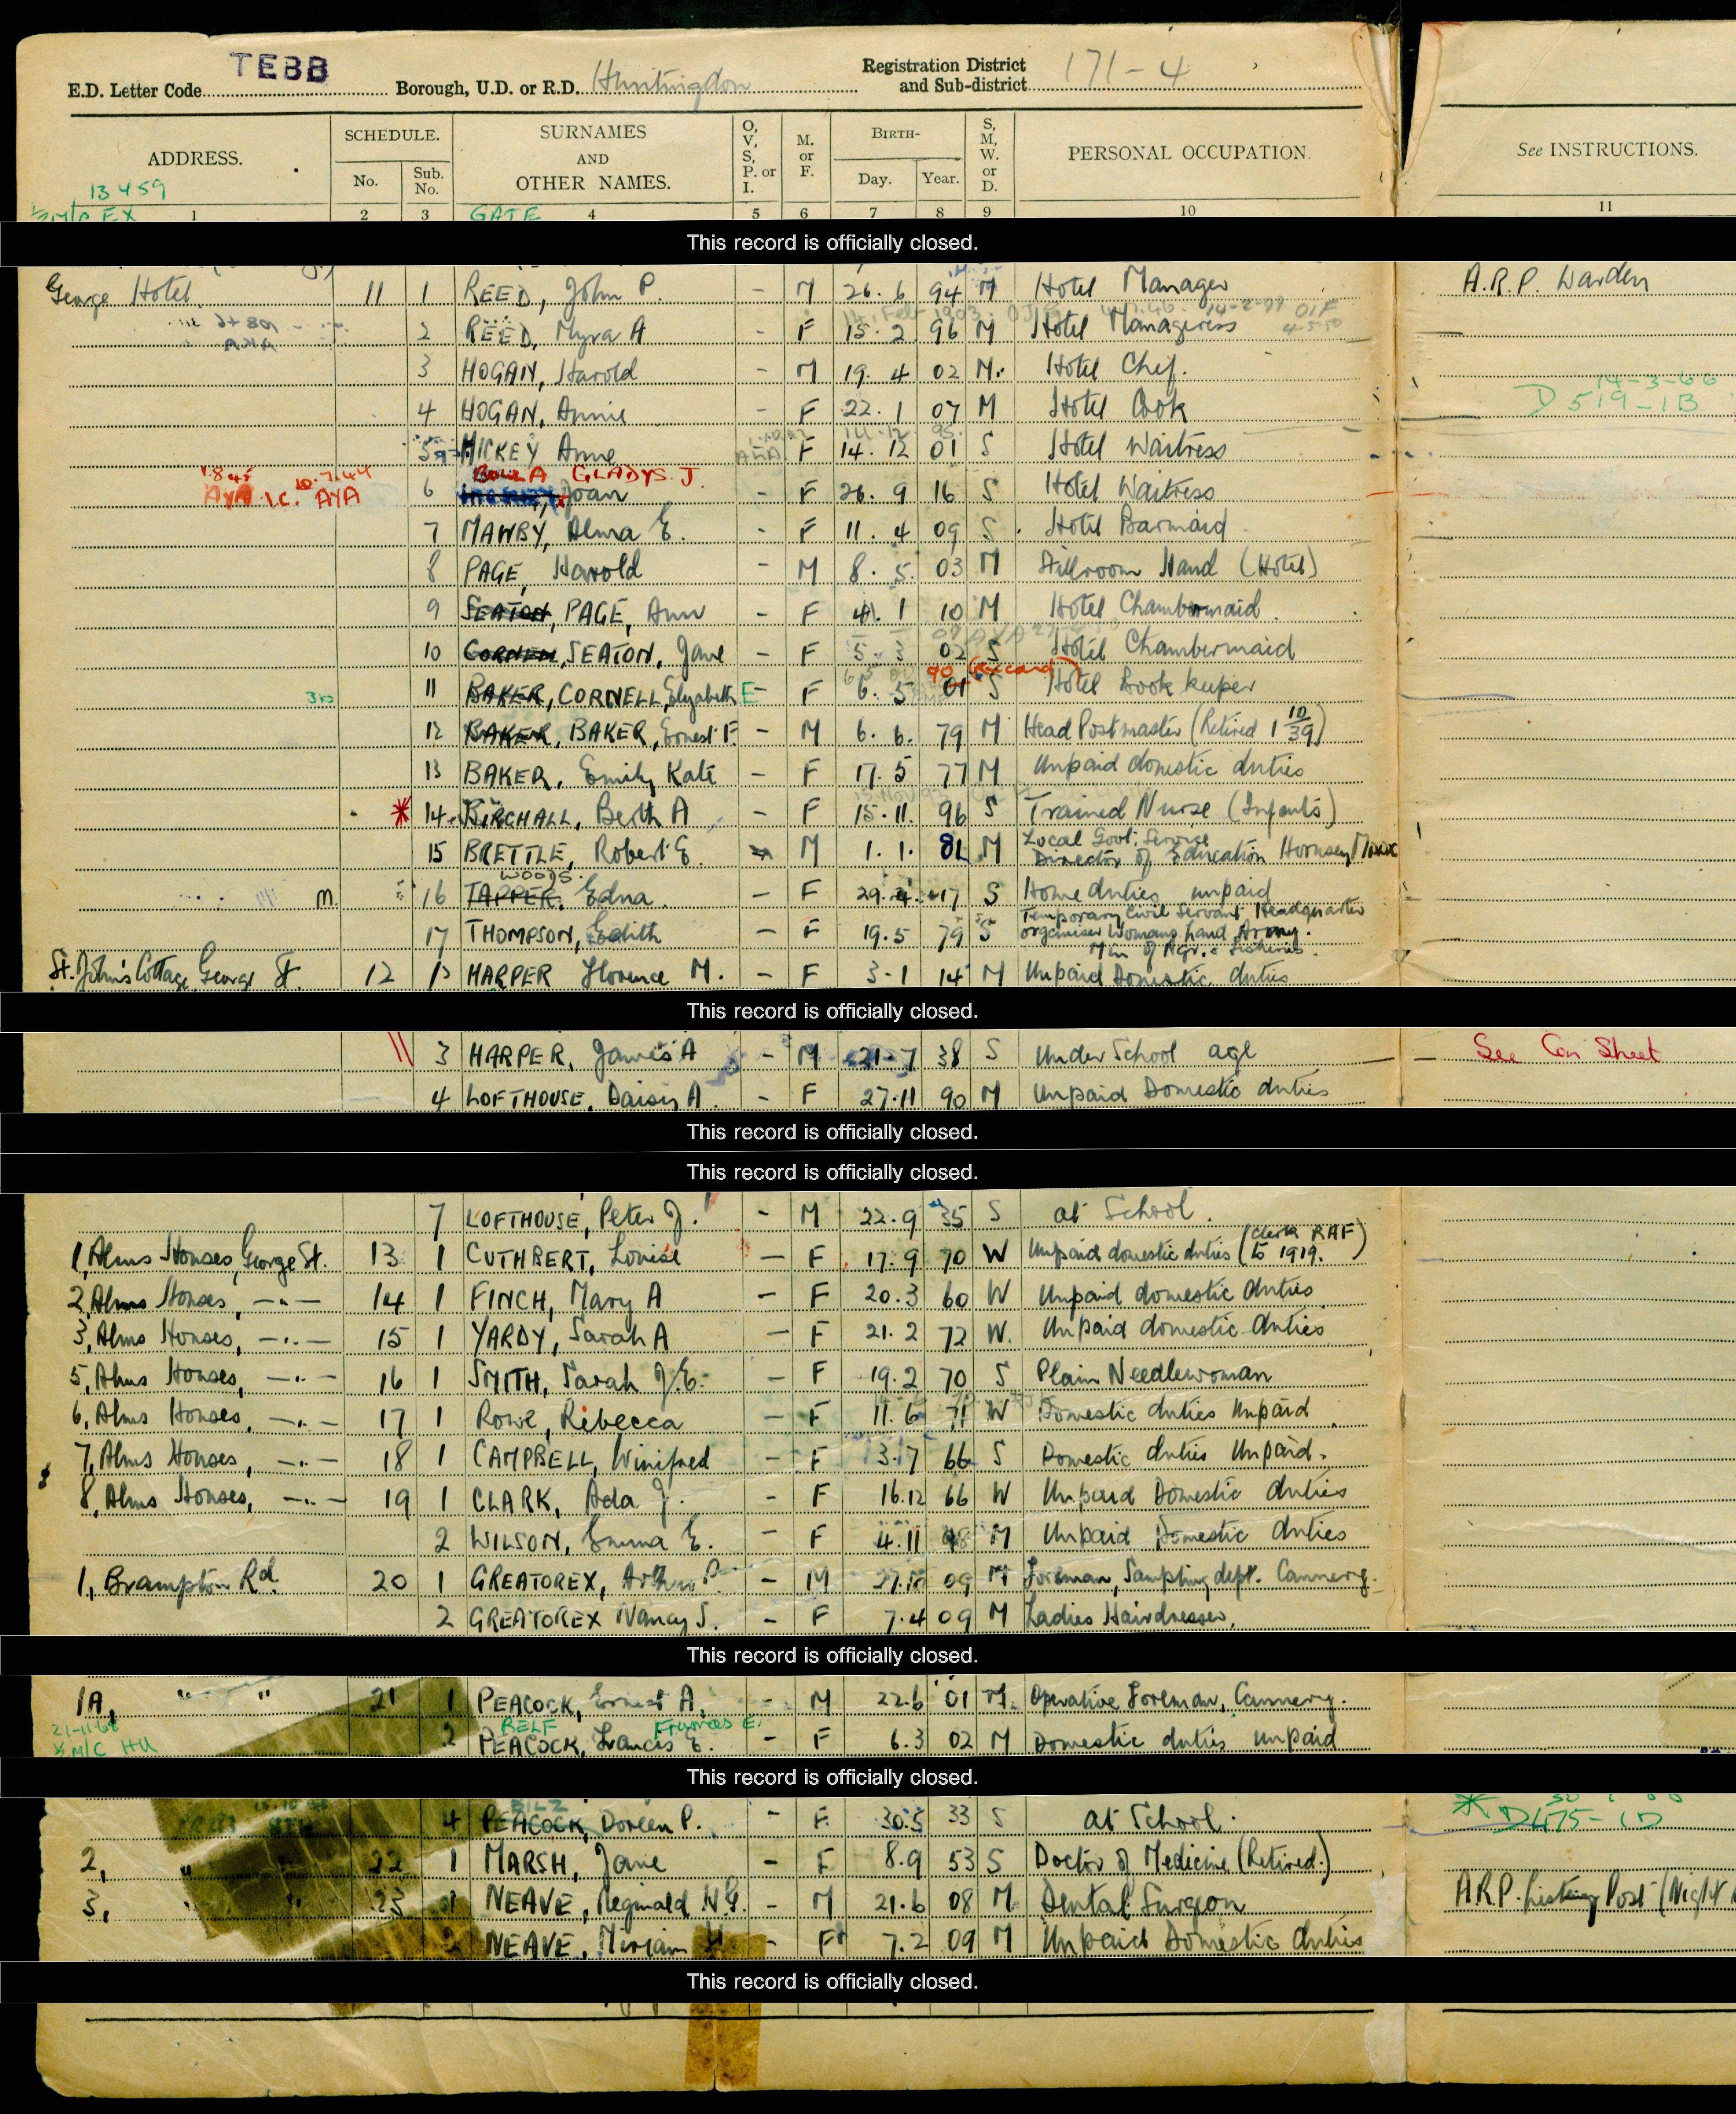 TEBB
E.D. Letter Code Borough, U.D. or R.D. Huntingdon Registration District and Sub-district 171-4
ADDRESS. SCHEDULE. No. Sub. No. SURNAMES AND OTHER NAMES. O, V, S, P. or I. M. or F. BIRTH- Day. Year. S, M, W. or D. PERSONAL OCCUPATION. See INSTRUCTIONS.
13459
1 2 3 GATE 4 5 6 7 8 9 10 11
This record is officially closed.
George Hotel. 11 1 REED, John P. - M 26. 6 94 M Hotel Manager A.R.P. Warden
2 REED, Myra A - F 15. 2 96 M Hotel Manageress
3 HOGAN, Harold - M 19. 4 02 M. Hotel Chef. 14-3-66
4 HOGAN, Annie - F 22. 1 07 M Hotel Cook D 519-1B
5 HICKEY Anne F 14. 12 01 S Hotel Waitress
GLADYS. J.
10.7.44 AYA 1.C. AYA 6 Joan - F 26. 9 16 S Hotel Waitress
7 MAWBY, Alma E. - F 11. 4 09 S Hotel Barmaid
8 PAGE, Harold - M 8. 5. 03 M Stillroom Hand (Hotel)
9 SEATON, PAGE, Ann - F 4. 1 10 M Hotel Chambermaid
10 CORNELL, SEATON, Jane - F 5. 3 02 S Hotel Chambermaid
11 BAKER, CORNELL, Elizabeth E - F 6. 5 01 S Hotel Book keeper
12 BAKER, BAKER, Ernest F. - M 6. 6. 79 M Head Postmaster (Retired 1 10/39)
13 BAKER, Emily Kate - F 17. 5 77 M Unpaid domestic duties
* 14 BIRCHALL, Berth A - F 15. 11. 96 S Trained Nurse (Infants)
15 BRETTLE, Robert E. M 1. 1. 81 M Local Govt. Service Director of Education Hornsey, Mddx
woods.
m. 16 TAPPER. Edna - F 29. 4. 17 S Home duties unpaid
17 THOMPSON, Edith - F 19. 5 79 S Temporary Civil Servant, Headquarter organiser Womans Land Army. Min of Agr. & Fisheries.
St. John's Cottage George St. 12 1 HARPER Florence M. - F 3. 1 14 M Unpaid Domestic duties
This record is officially closed.
3 HARPER, James A - M 21. 7 38 S Under School age See Con Sheet
4 LOFTHOUSE, Daisy A. - F 27. 11 90 M Unpaid Domestic duties
This record is officially closed.
This record is officially closed.
7 LOFTHOUSE, Peter J. - M 22. 9 35 S at School.
1, Alms Houses, George St. 13 1 CUTHBERT, Louise - F 17. 9 70 W Unpaid domestic duties (Clerk RAF to 1919.)
2, Alms Houses, -"- 14 1 FINCH, Mary A - F 20. 3 60 W Unpaid domestic duties
3, Alms Houses, -"- 15 1 YARDY, Sarah A - F 21. 2 72 W. Unpaid domestic duties
5, Alms Houses, -"- 16 1 SMITH, Sarah J.E. - F 19. 2 70 S Plain Needlewoman
6, Alms Houses, -"- 17 1 ROWE, Rebecca - F 11. 6 71 W Domestic duties Unpaid
7, Alms Houses, -"- 18 1 CAMPBELL, Winifred - F 3. 7 66 S Domestic duties Unpaid.
8, Alms Houses, -"- 19 1 CLARK, Ada J. - F 16. 12 66 W Unpaid Domestic duties
2 WILSON, Emma E. - F 4. 11 98 M Unpaid Domestic duties
1, Brampton Rd. 20 1 GREATOREX, Arthur P. - M 27. 10 09 M Foreman, Sampling dept. Cannery.
2 GREATOREX Nancy S. - F 7. 4 09 M Ladies Hairdresser.
This record is officially closed.
1A, " " 21 1 PEACOCK, Ernest A. - M 22. 6 01 M. Operative Foreman, Cannery.
21-11-68 RELF Frances E.
M/C HU 2 PEACOCK, Francis E. - F 6. 3 02 M Domestic duties unpaid
This record is officially closed.
4 PEACOCK, Doreen P. - F. 30. 5 33 S at School. * D475-1D
2, " 22 1 MARSH, Jane - F 8. 9 53 S Doctor of Medicine (Retired.)
3, " 23 1 NEAVE, Reginald - M 21. 6 08 M Dental Surgeon A.R.P. Listening Post (Night
2 NEAVE, Miriam - F 7. 2 09 M Unpaid Domestic duties
This record is officially closed.